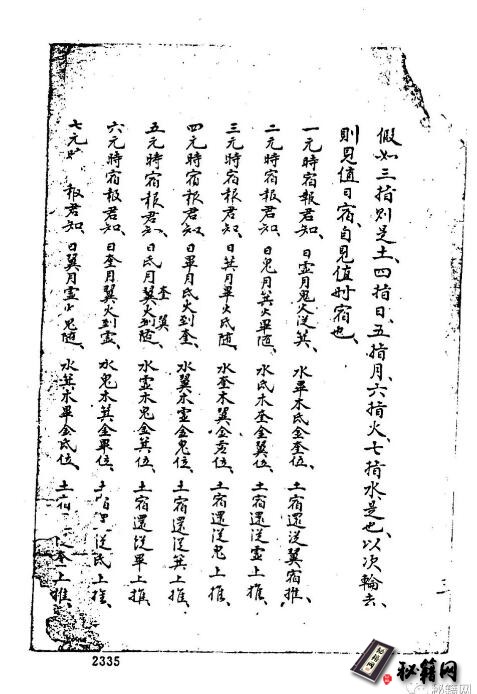 假如三指则是土、四指日、五指月、六指火、七指水是也、以次輪去、
則見值日宿、自見值时宿也、
一元時宿報君知、日虚月鬼火從箕、水畢木氐金奎位、土宿還從翼宿推、
二元時宿報君知、日鬼月箕火畢随、水氐木奎金翼位、土宿還從虚上推、
三元時宿報君知、日箕月畢火氐随、水奎木翼金虚位、土宿還從鬼上推、
四元時宿報君知、日畢月氐火到奎、水翼木虚金鬼位、土宿還從箕上推、
五元時宿報君知、日氐月翼火到随、水虚木鬼金箕位、土宿還從畢上推、
奎翼
六元時宿報君知、日奎月翼火到虚、水鬼木箕金畢位、土從氐上推、
七元報君知、日翼月虚火鬼随、水箕木畢金氐位、土奎上推、
三
2335
秘籍网
秘籍网
秘籍网